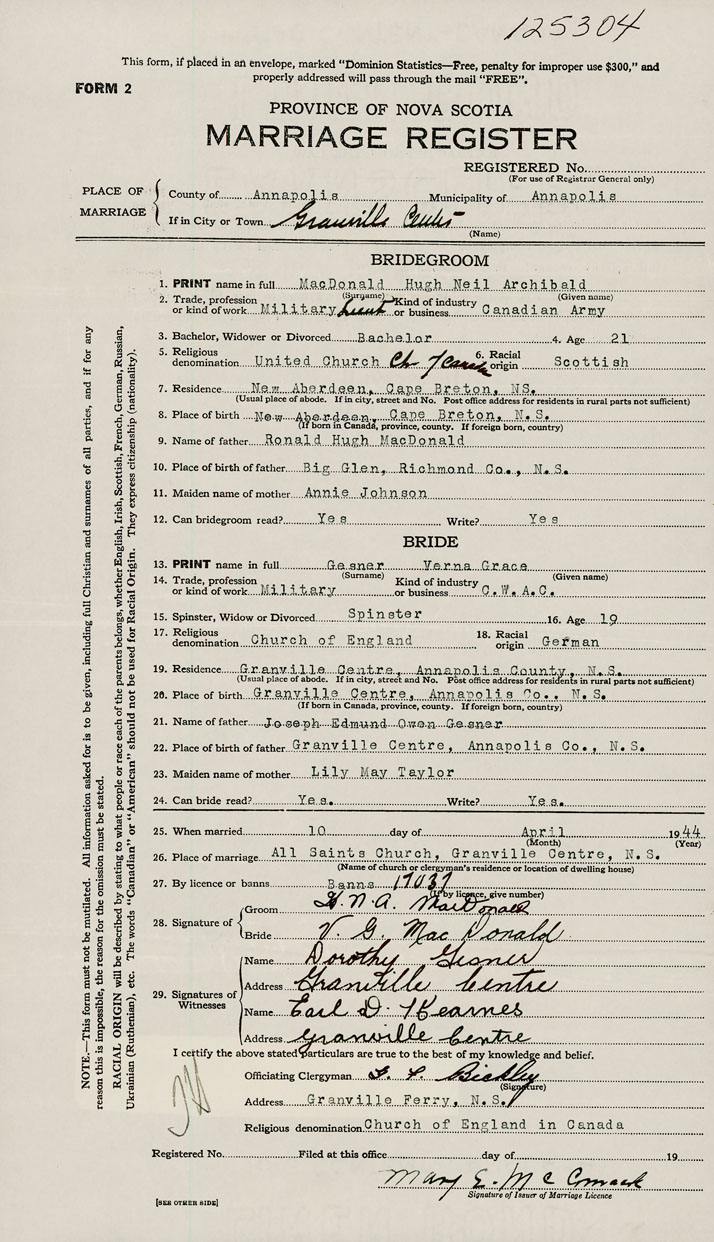 125304
This form, if placed in an envelope, marked "Dominion Statistics—Free, penalty for improper use $300," and
properly addressed will pass through the mail "FREE".
FORM 2
PROVINCE OF NOVA SCOTIA
MARRIAGE REGISTER
REGISTERED No.
(For use of Registrar General only)
PLACE OF MARRIAGE
County of Annapolis Municipality of Annapolis
If in City or Town Granville Centre
(Name)
BRIDEGROOM
1. PRINT name in full MacDonald Hugh Neil Archibald
(Surname) (Given name)
2. Trade, profession or kind of work Military Lieut Kind of industry or business Canadian Army
3. Bachelor, Widower or Divorced Bachelor 4. Age 21
5. Religious denomination United Church Ch of Canada 6. Racial origin Scottish
7. Residence New Aberdeen, Cape Breton, NS.
(Usual place of abode. If in city, street and No. Post office address for residents in rural parts not sufficient)
8. Place of birth New Aberdeen, Cape Breton, N.S.
(If born in Canada, province, county. If foreign born, country)
9. Name of father Ronald Hugh MacDonald
10. Place of birth of father Big Glen, Richmond Co., N.S.
11. Maiden name of mother Annie Johnson
12. Can bridegroom read? Yes Write? Yes
BRIDE
13. PRINT name in full Gesner Verna Grace
(Surname) (Given name)
14. Trade, profession or kind of work Military Kind of industry or business C.W.A.C.
15. Spinster, Widow or Divorced Spinster 16. Age 19
17. Religious denomination Church of England 18. Racial origin German
19. Residence Granville Centre, Annapolis County, N.S.
(Usual place of abode. If in city, street and No. Post office address for residents in rural parts not sufficient)
20. Place of birth Granville Centre, Annapolis Co., N.S.
(If born in Canada, province, county. If foreign born, country)
21. Name of father Joseph Edmund Owen Gesner
22. Place of birth of father Granville Centre, Annapolis Co., N.S.
23. Maiden name of mother Lily May Taylor
24. Can bride read? Yes. Write? Yes.
25. When married 10 day of April 1944
(Month) (Year)
26. Place of marriage All Saints Church, Granville Centre, N.S.
(Name of church or clergyman's residence or location of dwelling house)
27. By licence or banns Banns 17037
(If by licence, give number)
28. Signature of
Groom H. N. A. MacDonald
Bride V. G. MacDonald
29. Signatures of Witnesses
Name Dorothy Gesner
Address Granville Centre
Name Earl D. Kearnes
Address Granville Centre
I certify the above stated particulars are true to the best of my knowledge and belief.
Officiating Clergyman Bickley
(Signature)
Address Granville Ferry, N.S.
Religious denomination Church of England in Canada
Registered No. Filed at this office day of 19
Mary E. McCormack
Signature of Issuer of Marriage Licence
[SEE OTHER SIDE]
NOTE.—This form must not be mutilated. All information asked for is to be given, including full Christian and surnames of all parties, and if for any
reason this is impossible, the reason for the omission must be stated.
RACIAL ORIGIN will be described by stating to what people or race each of the parents belongs, whether English, Irish, Scottish, French, German, Russian,
Ukrainian (Ruthenian), etc. The words "Canadian" or "American" should not be used for Racial Origin. They express citizenship (nationality).